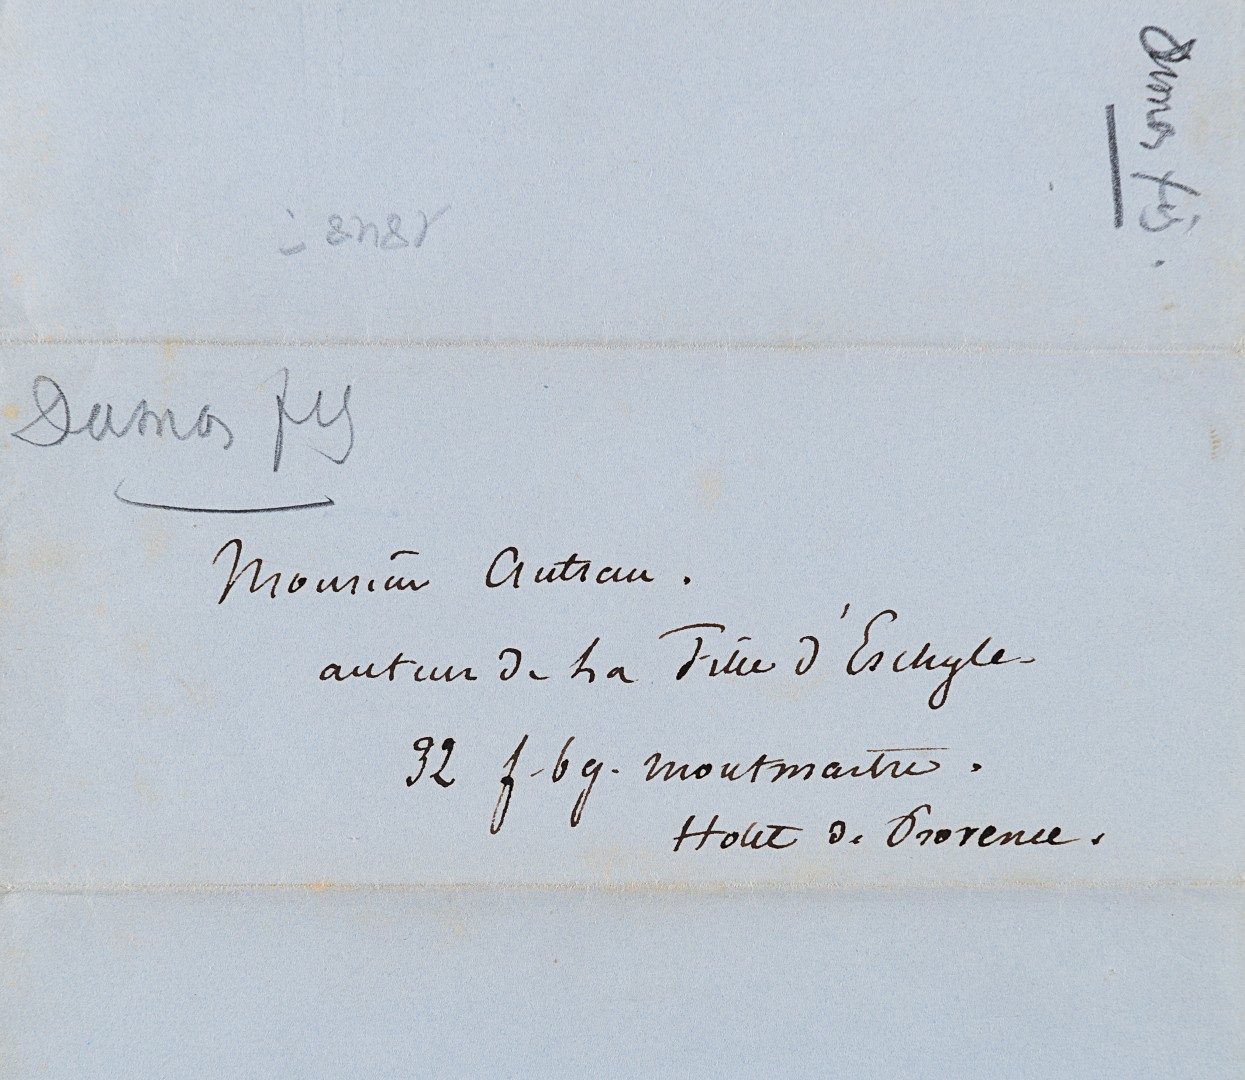 Dumas fils.
Dumas fils
Monsieur Autran.
auteur de La Fille d'Eschyle
32 f-bg. Montmartre.
Hotel de Provence.